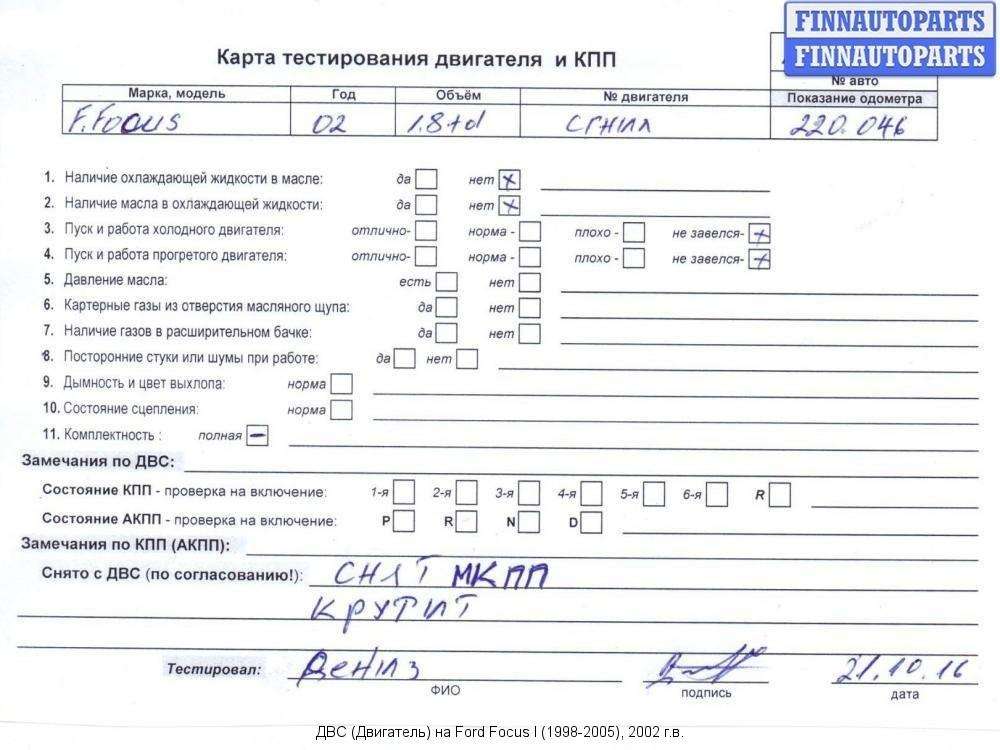 FINNAUTOPARTS
FINNAUTOPARTS
Карта тестирования двигателя и КПП
№ авто
Марка, модель Год Объём № двигателя Показание одометра
F. Focus 02 1.8td СГНИЛ 220.046
1. Наличие охлаждающей жидкости в масле: да нет x
2. Наличие масла в охлаждающей жидкости: да нет x
3. Пуск и работа холодного двигателя: отлично- норма - плохо - не завелся- x
4. Пуск и работа прогретого двигателя: отлично- норма - плохо - не завелся- x
5. Давление масла: есть нет
6. Картерные газы из отверстия масляного щупа: да нет
7. Наличие газов в расширительном бачке: да нет
8. Посторонние стуки или шумы при работе: да нет
9. Дымность и цвет выхлопа: норма
10. Состояние сцепления: норма
11. Комплектность : полная –
Замечания по ДВС:
Состояние КПП - проверка на включение: 1-я 2-я 3-я 4-я 5-я 6-я R
Состояние АКПП - проверка на включение: P R N D
Замечания по КПП (АКПП):
Снято с ДВС (по согласованию!): СНЯТ МКПП
КРУТИТ
Тестировал: 21.10.16
ФИО подпись дата
ДВС (Двигатель) на Ford Focus I (1998-2005), 2002 г.в.